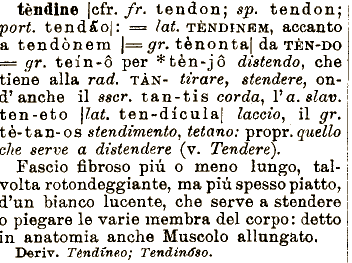 tèndine |cfr. fr. tendon; sp. tendon;
port. tendão|: = lat. TÈNDINEM, accanto
a tendònem |= gr. tènonta| da TÈN-DO
= gr. teín-ô per *tèn-jô distendo, che
tiene alla rad. TÀN- tirare, stendere, on-
d'anche il sscr. tan-tis corda, l'a. slav.
ten-eto |lat. ten-dícula| laccio, il gr.
tè-tan-os stendimento, tetano: propr. quello
che serve a distendere (v. Tendere).
Fascio fibroso piú o meno lungo, tal-
volta rotondeggiante, ma piú spesso piatto,
d'un bianco lucente, che serve a stendere
o piegare le varie membra del corpo: detto
in anatomia anche Muscolo allungato.
Deriv. Tendíneo; Tendinóso.